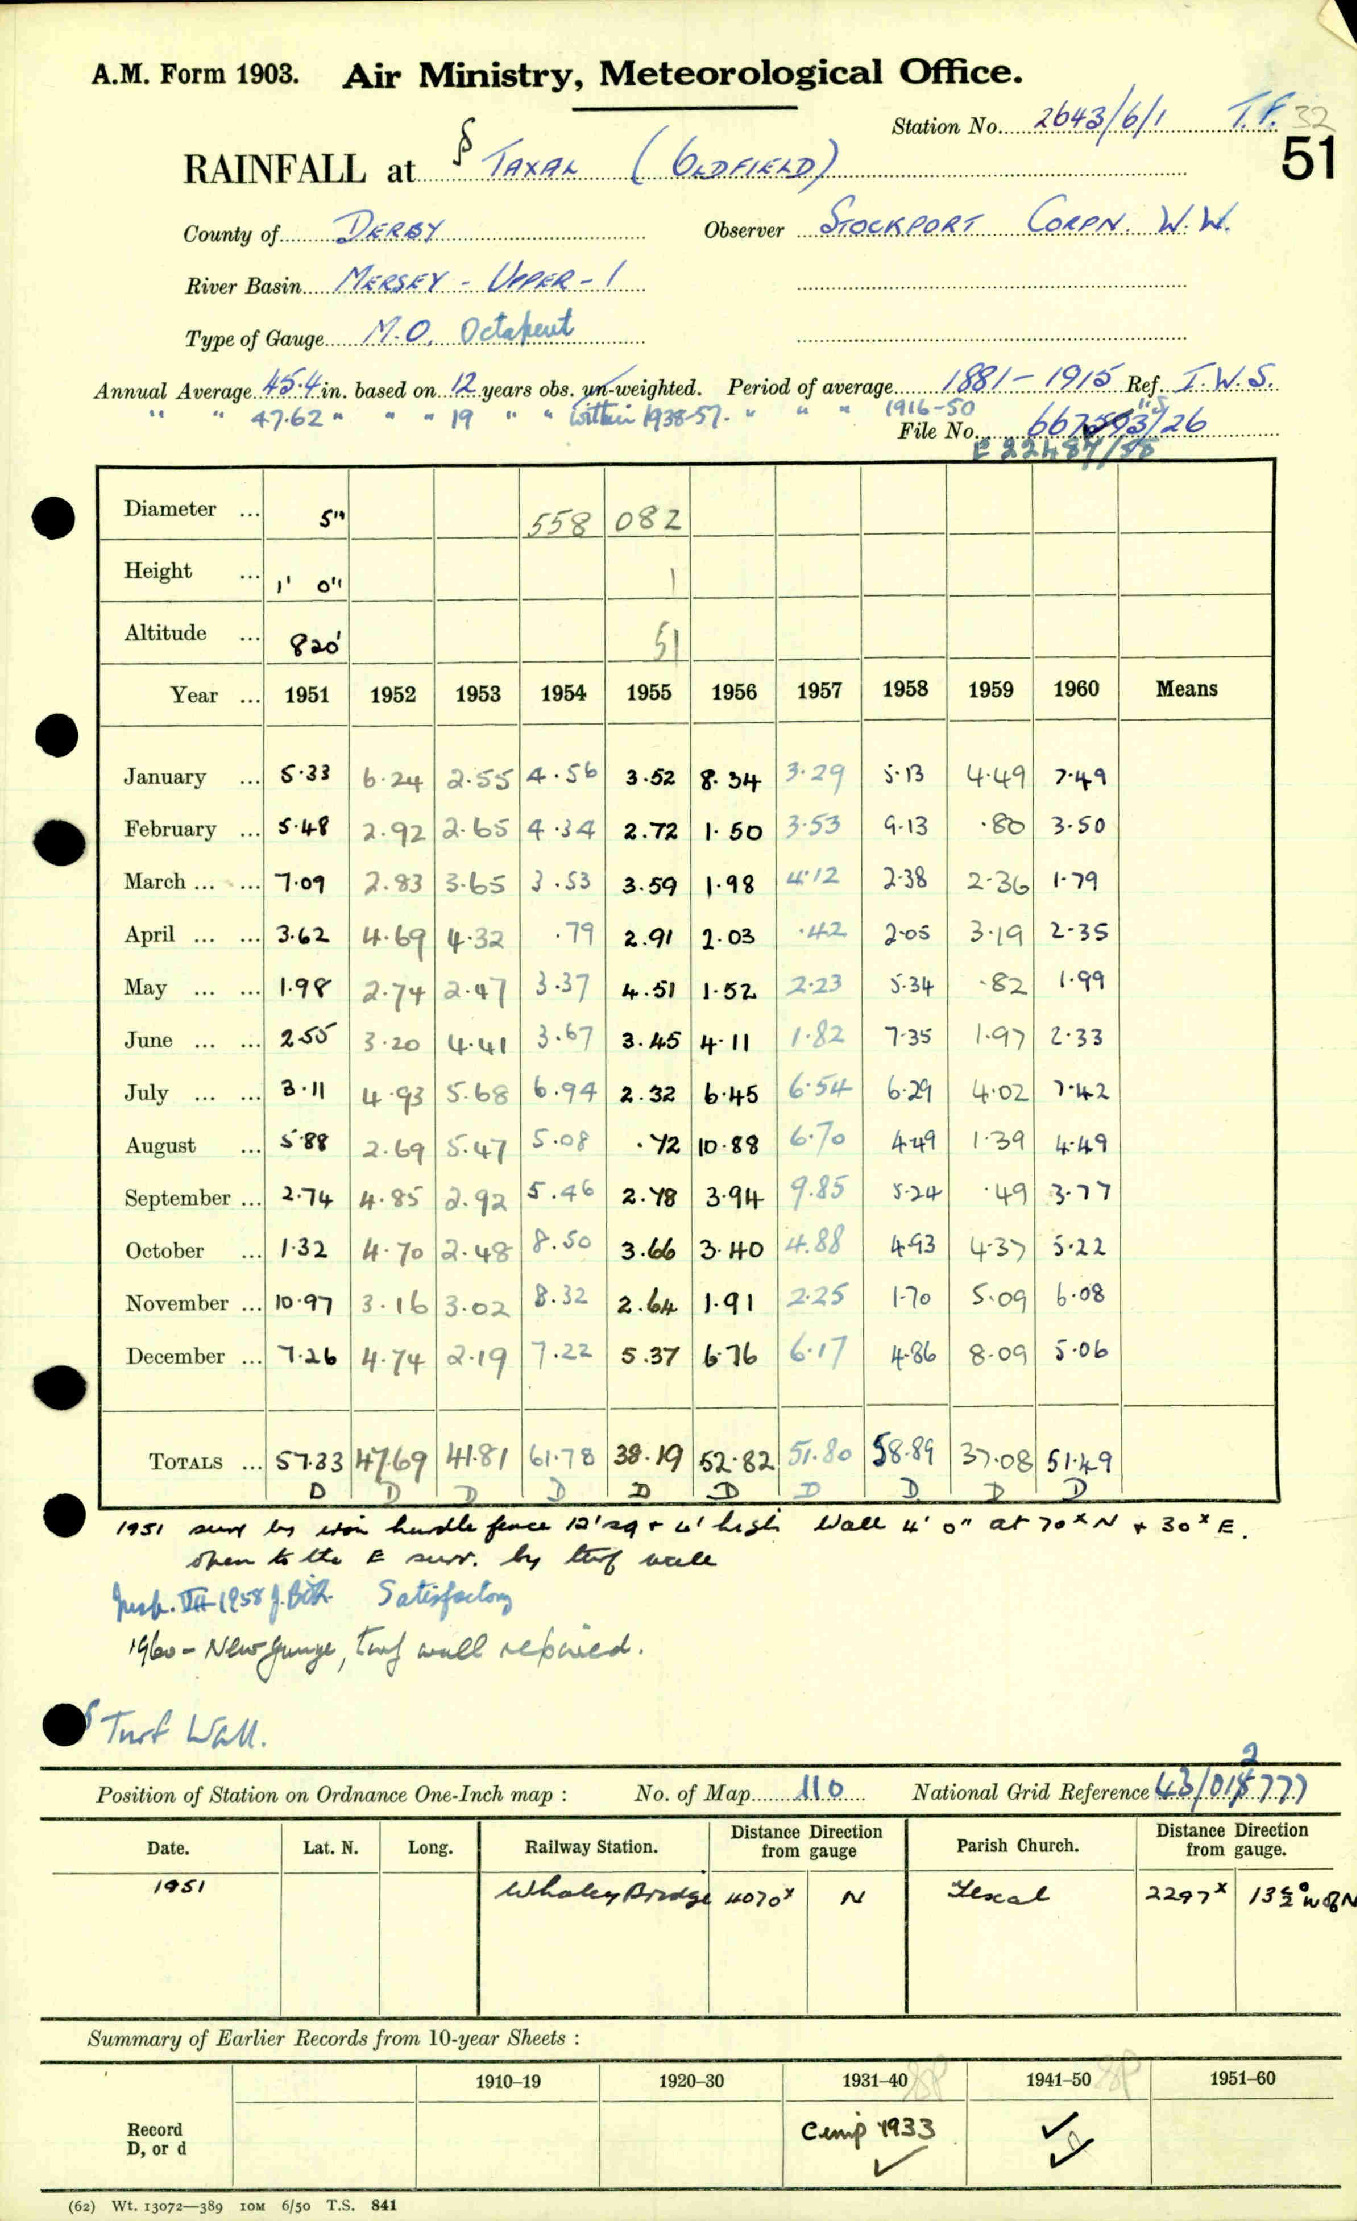 A.M. Form 1903. Air Ministry, Meteorological Office.
Station No. 2643/6/1 T.F. 32
51
RAINFALL at § TAXAL (OLDFIELD)
County of DERBY Observer STOCKPORT CORPN. W.W.
River Basin MERSEY - UPPER - 1
Type of Gauge M.O. Octapent
Annual Average 45.4 in. based on 12 years obs. un-weighted. Period of average 1881-1915 Ref. I.W.S.
" " 47.62 " " " 19 " " within 1938-57. " " " 1916-50 "
File No. 667593/26
E 22487/55
Diameter ... 5" 558 082
Height ... 1' 0" 1
Altitude ... 820' 51
Year ... 1951 1952 1953 1954 1955 1956 1957 1958 1959 1960 Means
January ... 5.33 6.24 2.55 4.56 3.52 8.34 3.29 5.13 4.49 7.49
February ... 5.48 2.92 2.65 4.34 2.72 1.50 3.53 9.13 .80 3.50
March ... ... 7.09 2.83 3.65 3.53 3.59 1.98 4.12 2.38 2.36 1.79
April ... ... 3.62 4.69 4.32 .79 2.91 2.03 .42 2.05 3.19 2.35
May ... ... 1.98 2.74 2.47 3.37 4.51 1.52 2.23 5.34 .82 1.99
June ... ... 2.55 3.20 4.41 3.67 3.45 4.11 1.82 7.35 1.97 2.33
July ... ... 3.11 4.93 5.68 6.94 2.32 6.45 6.54 6.29 4.02 7.42
August ... 5.88 2.69 5.47 5.08 .72 10.88 6.70 4.49 1.39 4.49
September ... 2.74 4.85 2.92 5.46 2.78 3.94 9.85 5.24 .49 3.77
October ... 1.32 4.70 2.48 8.50 3.66 3.40 4.88 4.93 4.37 5.22
November ... 10.97 3.16 3.02 8.32 2.64 1.91 2.25 1.70 5.09 6.08
December ... 7.26 4.74 2.19 7.22 5.37 6.76 6.17 4.86 8.09 5.06
TOTALS ... 57.33 47.69 41.81 61.78 38.19 52.82 51.80 58.89 37.08 51.49
D D D D D D D D D D
1951 surr by iron hurdle fence 12' sq + 4' high Wall 4' 0" at 70ˣ N + 30ˣ E.
open to the E surr. by turf wall
Insp. VII 1958 J. Satisfactory
1960 - New gauge, turf wall repaired.
§ Turf Wall.
Position of Station on Ordnance One-Inch map : No. of Map 110 National Grid Reference 43/018777
2
Date. Lat. N. Long. Railway Station. Distance from Direction gauge Parish Church. Distance from Direction gauge.
1951 Whaley Bridge 4070ˣ N Texal 2297ˣ 13½° W of N
Summary of Earlier Records from 10-year Sheets :
1910–19 1920–30 1931–40 1941–50 1951–60
Record
D, or d
Cemp 1933 ✓ ✓ ✓
(62) Wt. 13072—389 10M 6/50 T.S. 841